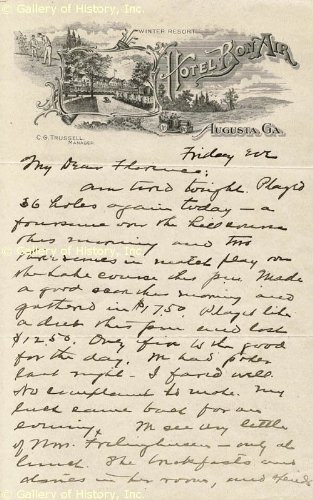 © Gallery of History, Inc.
WINTER RESORT
HOTEL BON AIR
AUGUSTA, GA.
C.G. TRUSSELL,
MANAGER.
Friday Eve
My Dear Florence:
Am tired tonight. Played
36 holes again today – a
foursome over the hill course
this morning and two
in match play over
the Lake course this pm. Made
a good score this morning and
gathered in $17.50. Played like
a dub this pm and lost
$12.50. Only five to the good
for the day. We had poker
last night – I fared well.
No complaint to make. My
luck came back for an
evening. We see very little
of Mrs. Frelinghuysen – only at
lunch. She breakfasts and
dines in her rooms, and spends
© Gallery of History, Inc.